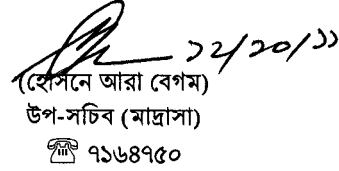 ১২/১০/১১
(হোসনে আরা বেগম)
উপ-সচিব (মাদ্রাসা)
☎ ৭১৬৪৭৫০